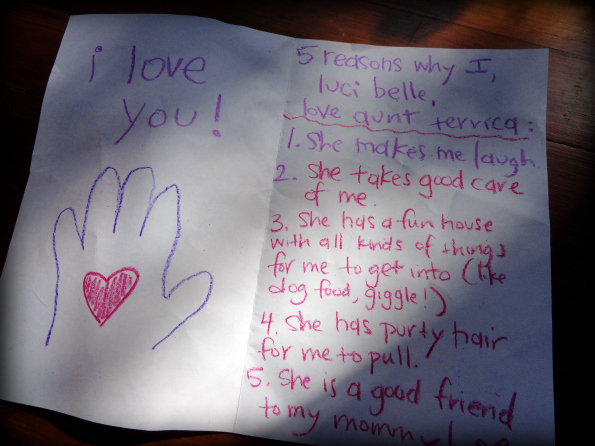 i love
you!
5 reasons why I,
luci belle,
love aunt terrica:
1. She makes me laugh
2. She takes good care
of me.
3. She has a fun house
with all kinds of things
for me to get into (like
dog food, giggle!)
4. She has purty hair
for me to pull.
5. She is a good friend
to my mommy